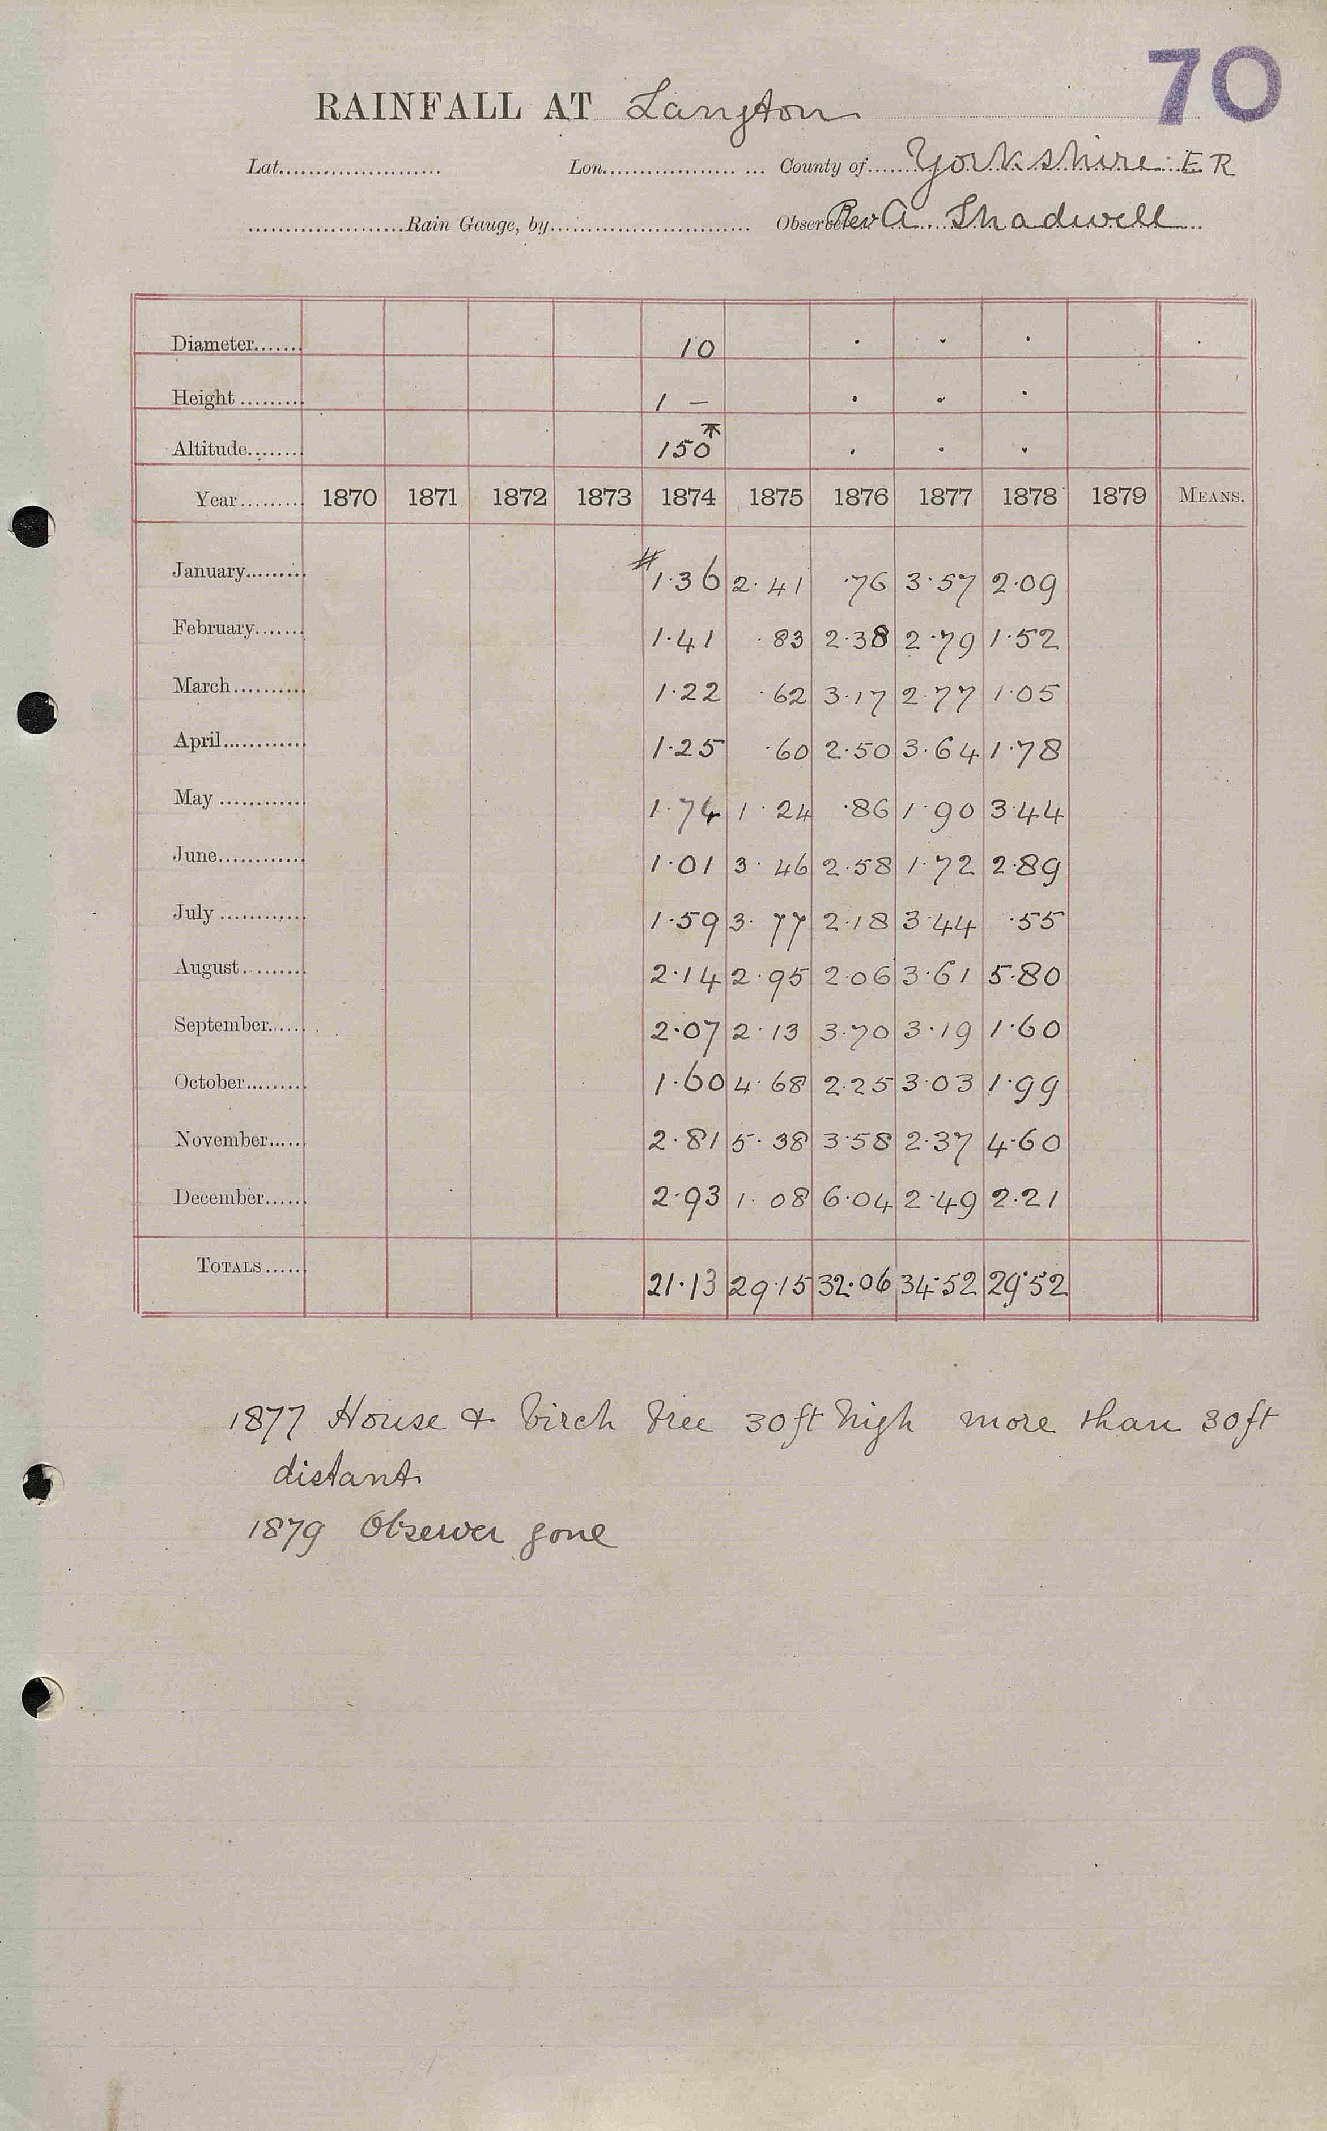 70
RAINFALL AT Langton
Lat. Lon. County of Yorkshire E R
Rain Gauge, by Observer Rev A. Shadwell
Diameter 10 · · · ·
Height 1 — · · ·
Altitude 150 · · ·
Year 1870 1871 1872 1873 1874 1875 1876 1877 1878 1879 MEANS.
January #1·36 2·41 ·76 3·57 2·09
February 1·41 ·83 2·38 2·79 1·52
March 1·22 ·62 3·17 2·77 1·05
April 1·25 ·60 2·50 3·64 1·78
May 1·74 1·24 ·86 1·90 3·44
June 1·01 3·46 2·58 1·72 2·89
July 1·59 3·77 2·18 3·44 ·55
August 2·14 2·95 2·06 3·61 5·80
September 2·07 2·13 3·70 3·19 1·60
October 1·60 4·68 2·25 3·03 1·99
November 2·81 5·38 3·58 2·37 4·60
December 2·93 1·08 6·04 2·49 2·21
TOTALS 21·13 29·15 32·06 34·52 29·52
1877 House & birch tree 30ft high more than 30ft
distant
1879 Observer gone